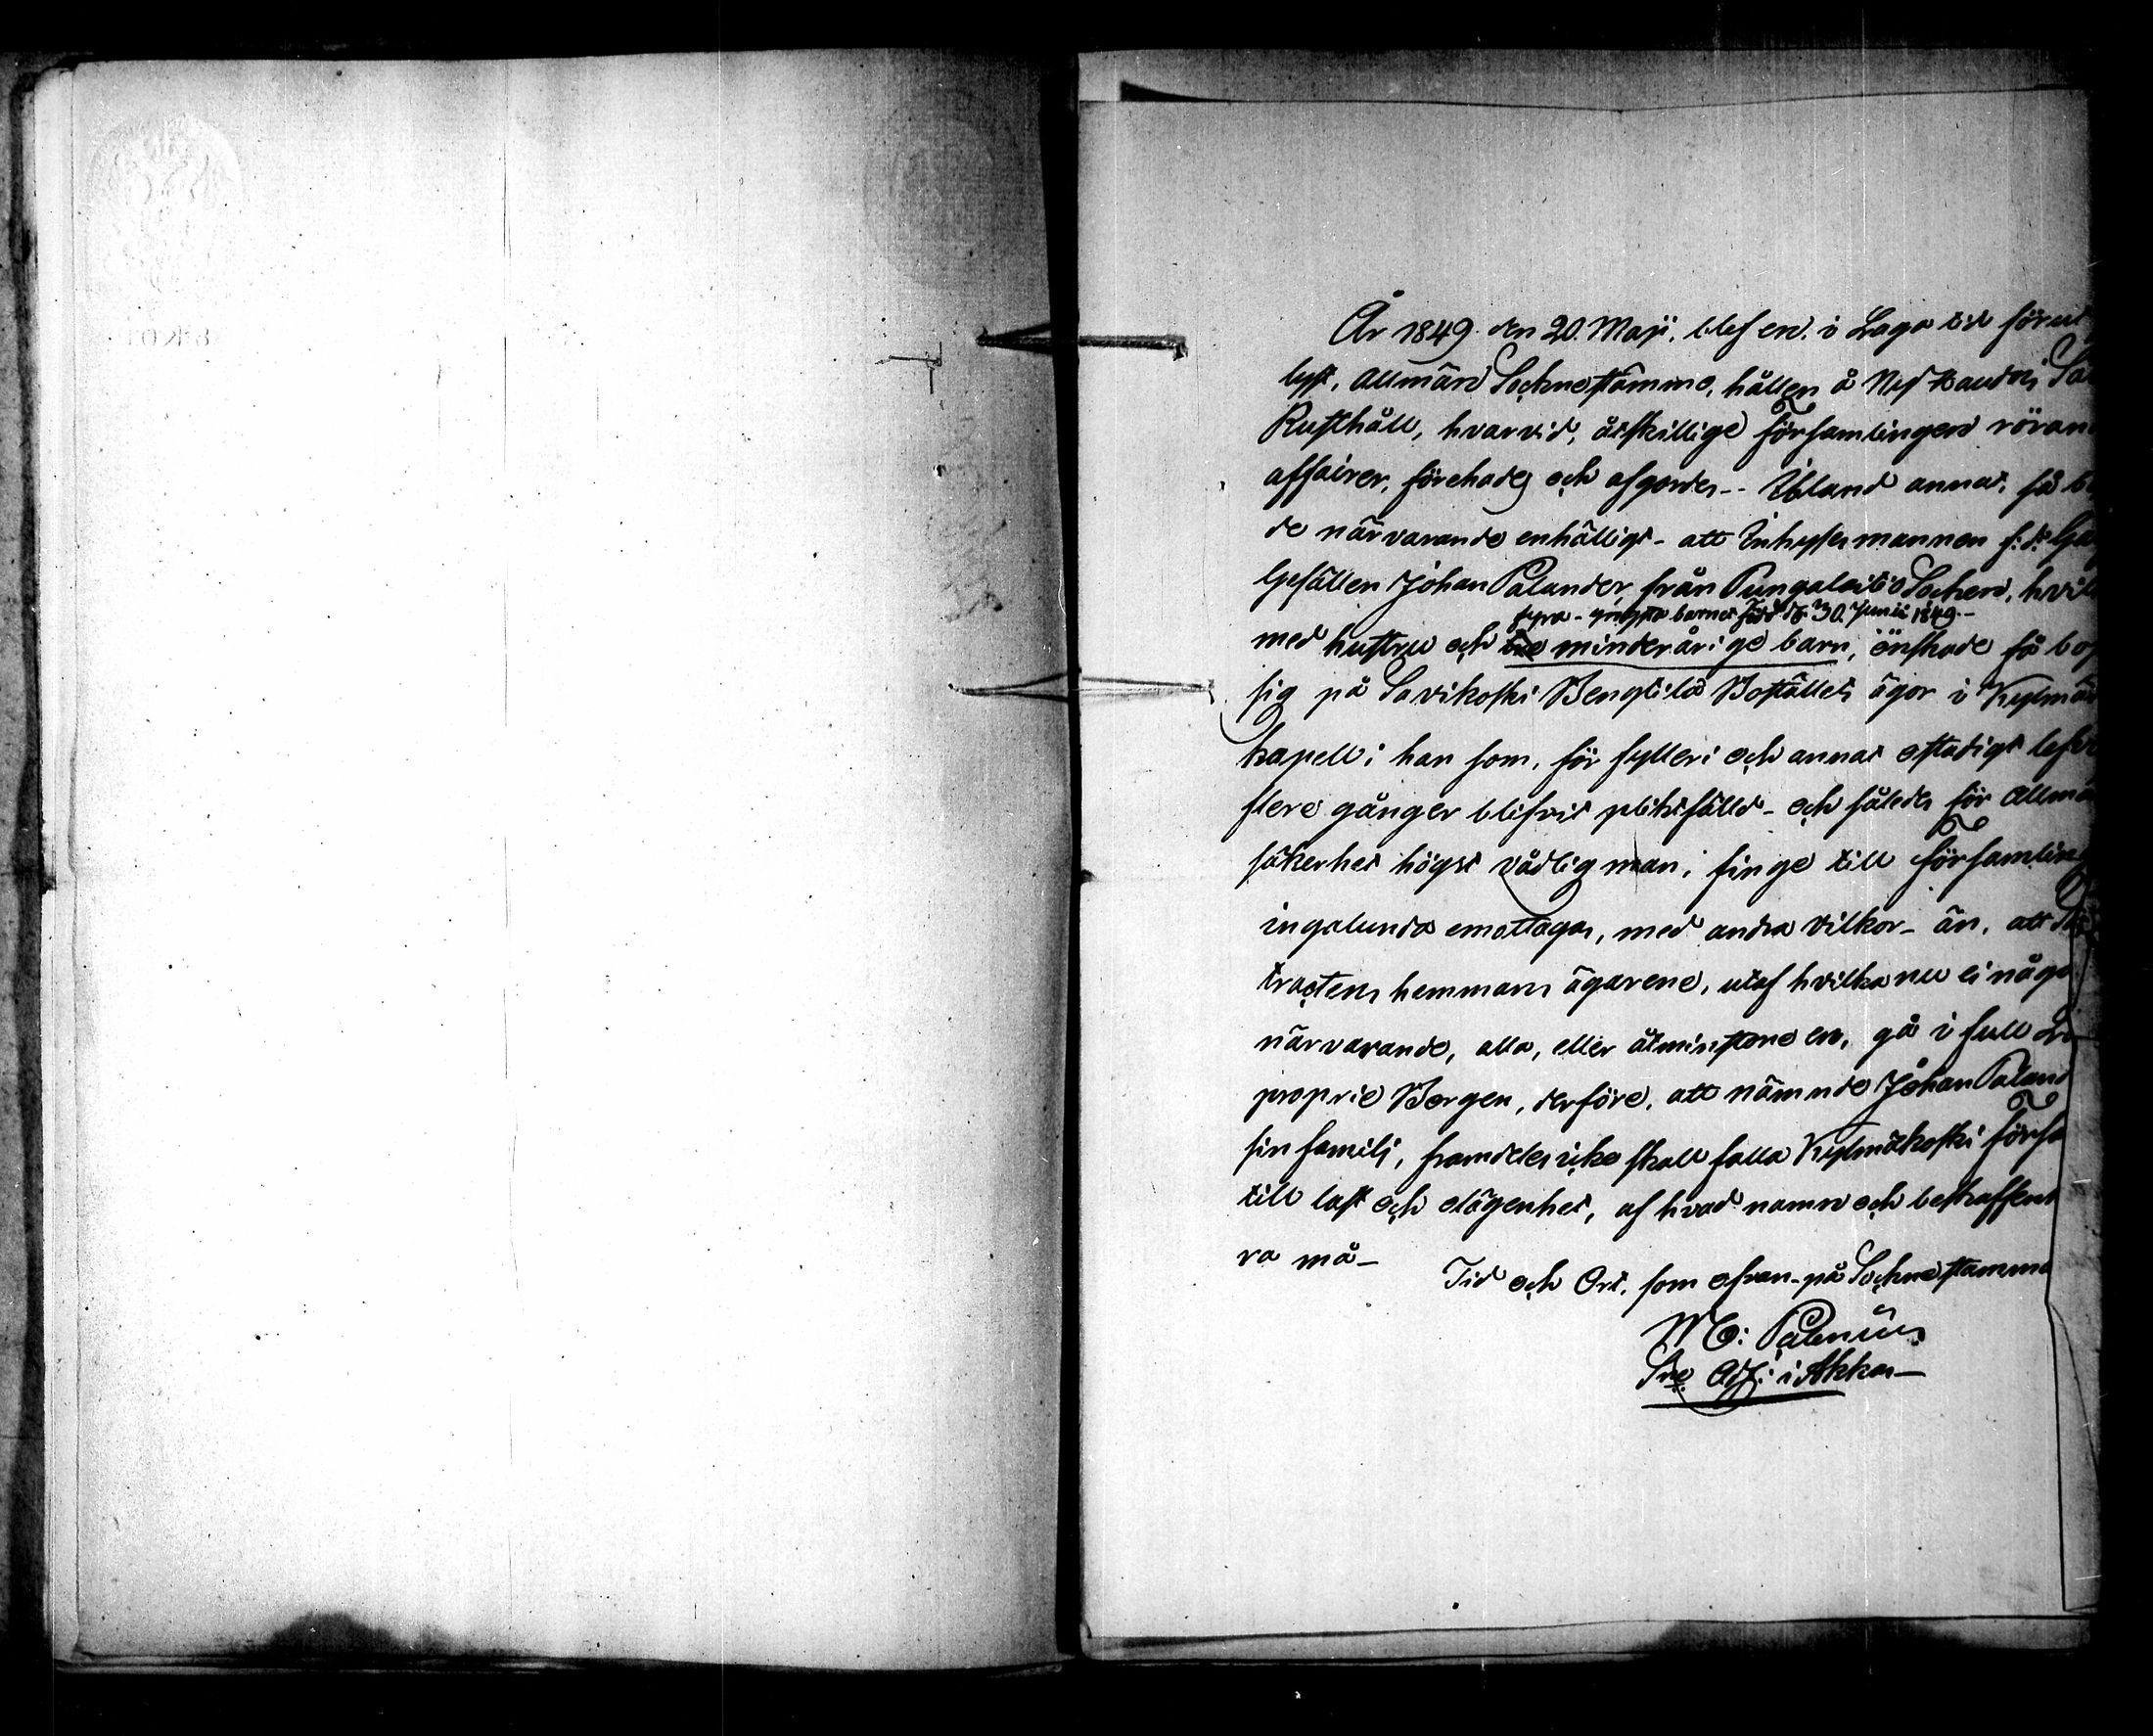 År 1849. den 20. Maji, blef en, i Laga tid förut
lyst, Allmän Sockne stämma, hållen å Ned Kaudois
Rusthåll, hvarvid, åtskillige Församlingen röran
affairer, förehades och afgordes-- Ibland annat, så
de närvarande enhälligt- att Inhysesmannen f:d:
Gefällen Johan Palander, från Pungalaitio Socken, hvil
fyra - yngsta barnet född d. 30. Junii 1849.-
med hustru och minderårige barn, önskade få
sig på Savikoski Bengtilä Boställets ägor i Kylmä
kapell; han som, för fylleri och annat ostadigt lefve
flere gånger blifvit pliktfälld- och således för Allmän
säkerhet högst vådlig man; finge till Församling
ingalunda emottagas, med andra vilkor- än, att
tractens hemmans ägarene, utaf hvilka nu ei någo
närvarande, alla, eller åtminstone en, gå i full
proprie Borgen, derföre, att nämnde Johan Paland
sin familj, framdeles icke skall falla Kylmäkoski Församl
till last och olägenhet, af hvad namn och beskaffenh
ra må-
Tid och Ort, som ofvan- på Sockne stämma
M E: Palenius
Sve Adj: i Akkas-